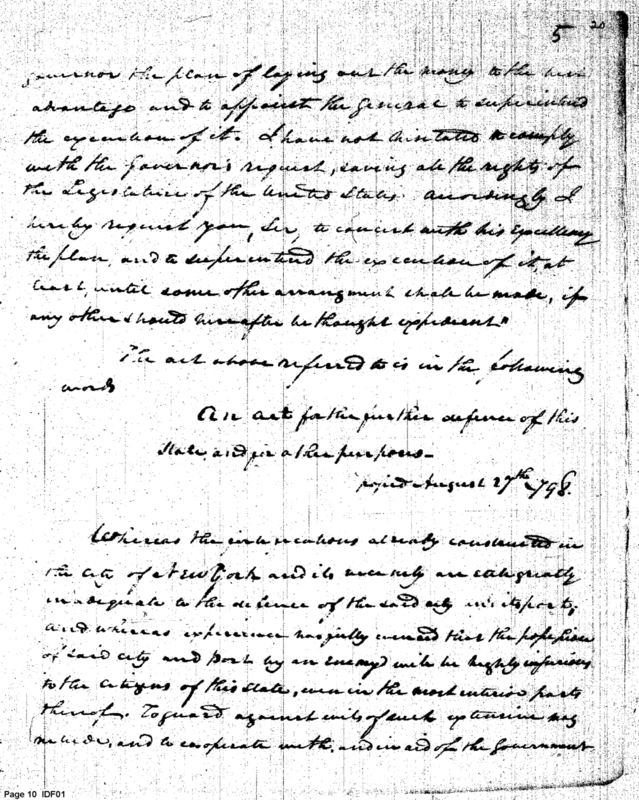 5 20
Governor the plan of laying out the money to the best
advantage and to appoint the General to superintend
the execution of it. I have not hesitated to comply
with the Governor's request, saving all the rights of
the Legislature of the United States. Accordingly I
hereby request you, Sir, to concert with his Excellency
the plan, and to superintend the execution of it, at
least, until some other arrangment shall be made, if
any other should hereafter be thought expedient"
The act above referred to is in the following
words
An act for the further defence of this
State, and for other purposes—
passed August 27th 1798.
Whereas the fortifications already constructed in
the city of New York and its vicinity are still greatly
inadequate to the defence of the said city and its port;
And whereas experience has fully evinced that the possession
of said city and Port by an enemy will be highly injurious
to the citizens of this State, even in the most interior parts
thereof. To guard against evils of such extensive mag
nitude, and to cooperate with, and in aid of the Government
Page 10 IDF01